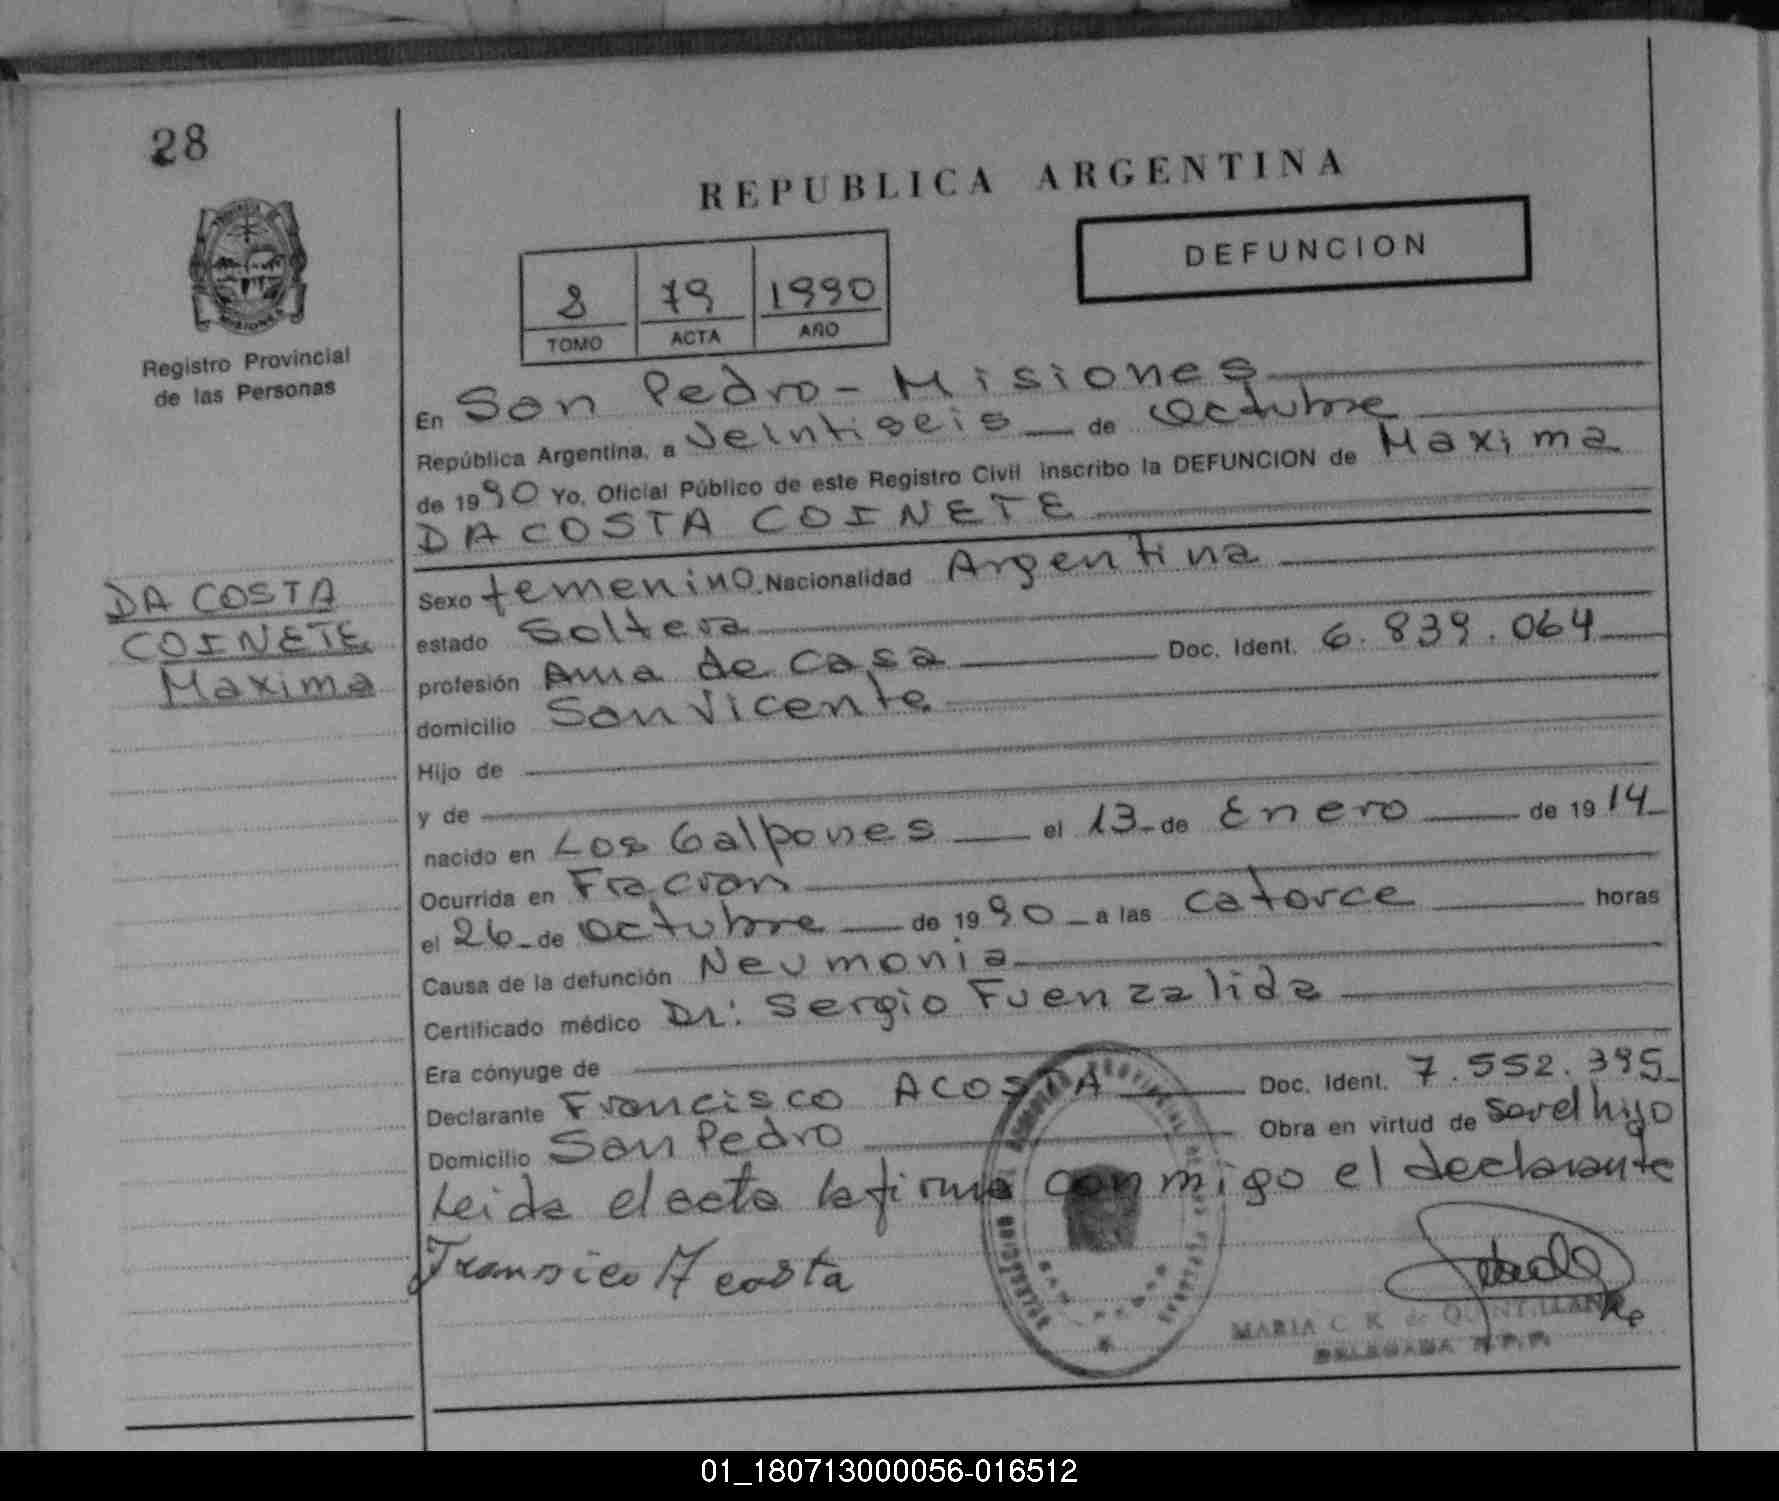 28
REPUBLICA ARGENTINA
DEFUNCION
8 79 1990
TOMO ACTA AÑO
Registro Provincial
de las Personas
En San Pedro - Misiones
República Argentina, a Veintiseis de Octubre
de 1990 Yo, Oficial Público de este Registro Civil inscribo la DEFUNCION de Maxima
DA COSTA COINETE
DA COSTA
COINETE
Maxima
Sexo femenino. Nacionalidad Argentina
estado Soltera
profesión Ama de casa Doc. Ident. 6.839.064
domicilio San Vicente
Hijo de
y de
nacido en Los Galpones el 13 de Enero de 1914
Ocurrida en Fracran
el 26 de Octubre de 1990 a las catorce horas
Causa de la defunción Neumonia
Certificado médico Dr: Sergio Fuenzalida
Era cónyuge de
Declarante Francisco ACOSTA Doc. Ident. 7.552.395
Domicilio San Pedro Obra en virtud de Ser el hijo
Leida el acta la firma conmigo el declarante
Fransico Acosta
MARIA C. K. de QUINTILLAN
DELEGADA R.P.P.
01_180713000056-016512